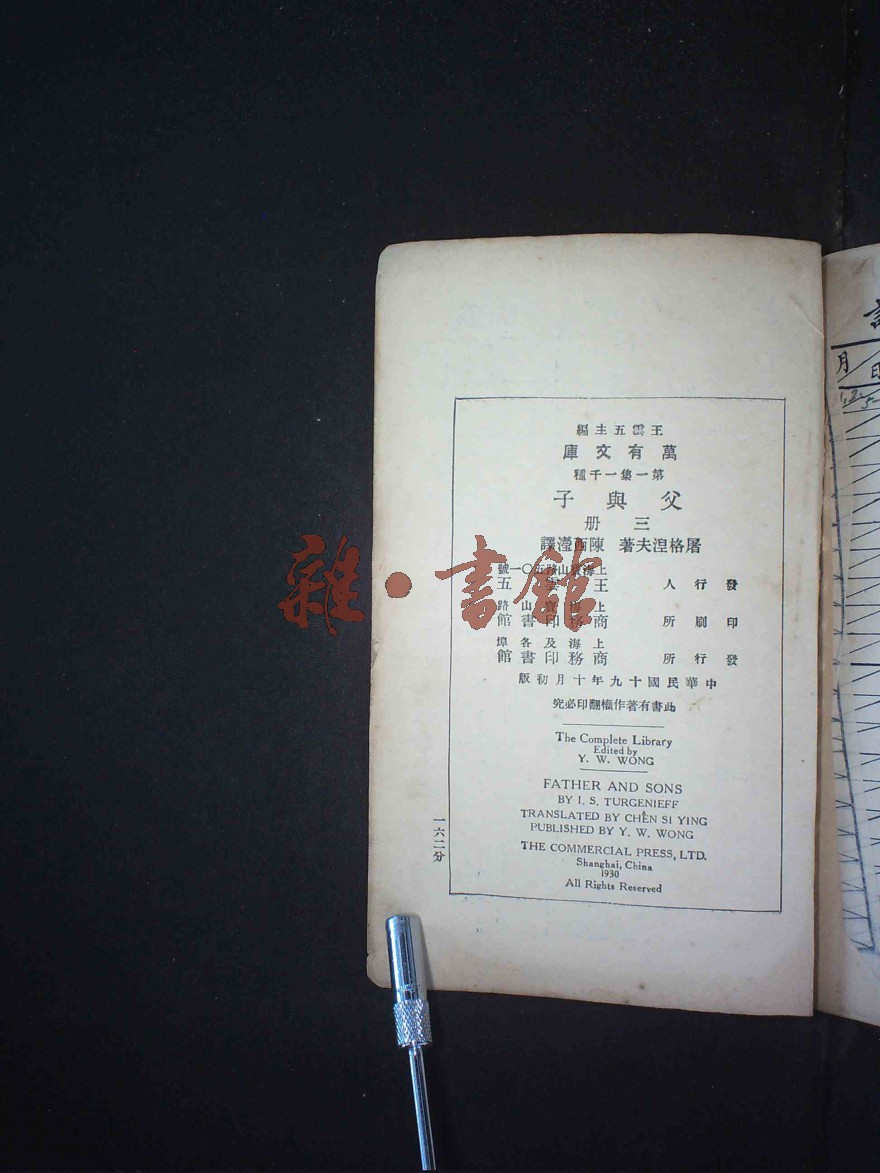 王雲五主編
萬有文庫
第一集一千種
父與子
三册
屠格涅夫著 陳西瀅譯
上海寶山路五〇一號
發行人 王雲五
上海寶山路
印刷所 商務印書館
上海及各埠
發行所 商務印書館
中華民國十九年十月初版
此書有著作權翻印必究
The Complete Library
Edited by
Y. W. WONG
FATHER AND SONS
BY I. S. TURGENIEFF
TRANSLATED BY CHÊN SI YING
PUBLISHED BY Y. W. WONG
THE COMMERCIAL PRESS, LTD.
Shanghai, China
1930
All Rights Reserved
一六二分
雜·書館
月
日